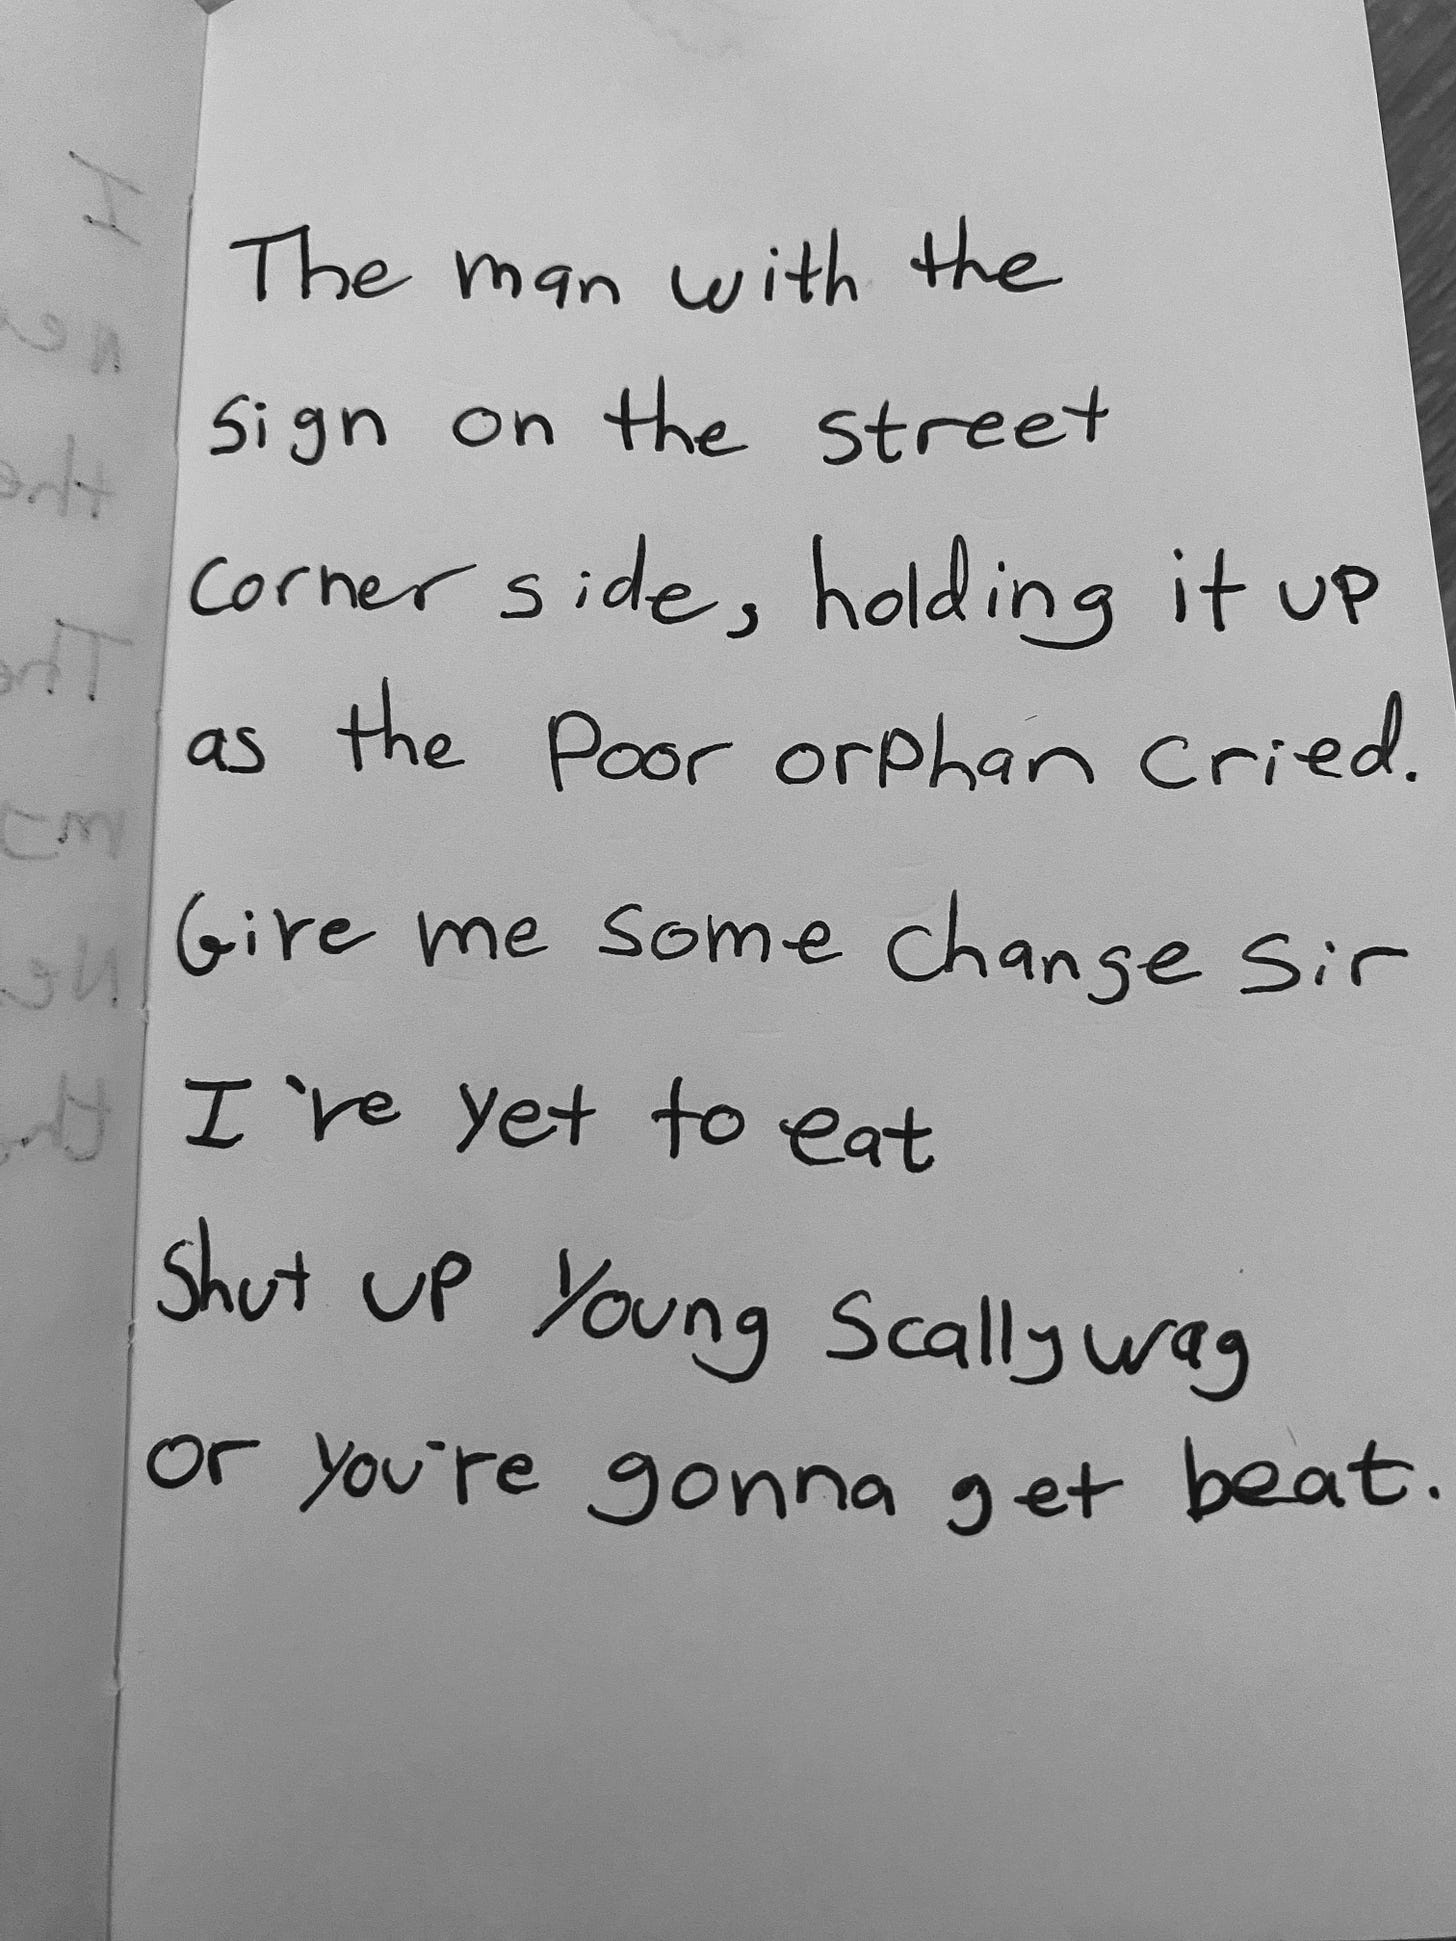 The man with the
sign on the street
corner side, holding it up
as the Poor orphan cried.
Give me some change sir
I've yet to eat
Shut up Young Scallywag
or you're gonna get beat.